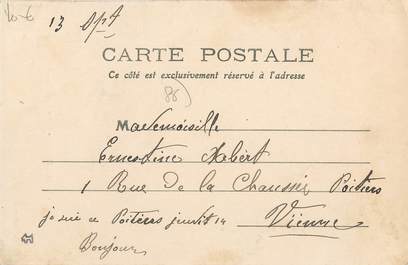 13
CARTE POSTALE
Ce côté est exclusivement réservé à l'adresse
(86)
Mademoiselle
Ernestine Aubert
1 Rue de la Chaussée Poitiers
je suis a Poitiers jeudi 14 Vienne
Bonjour